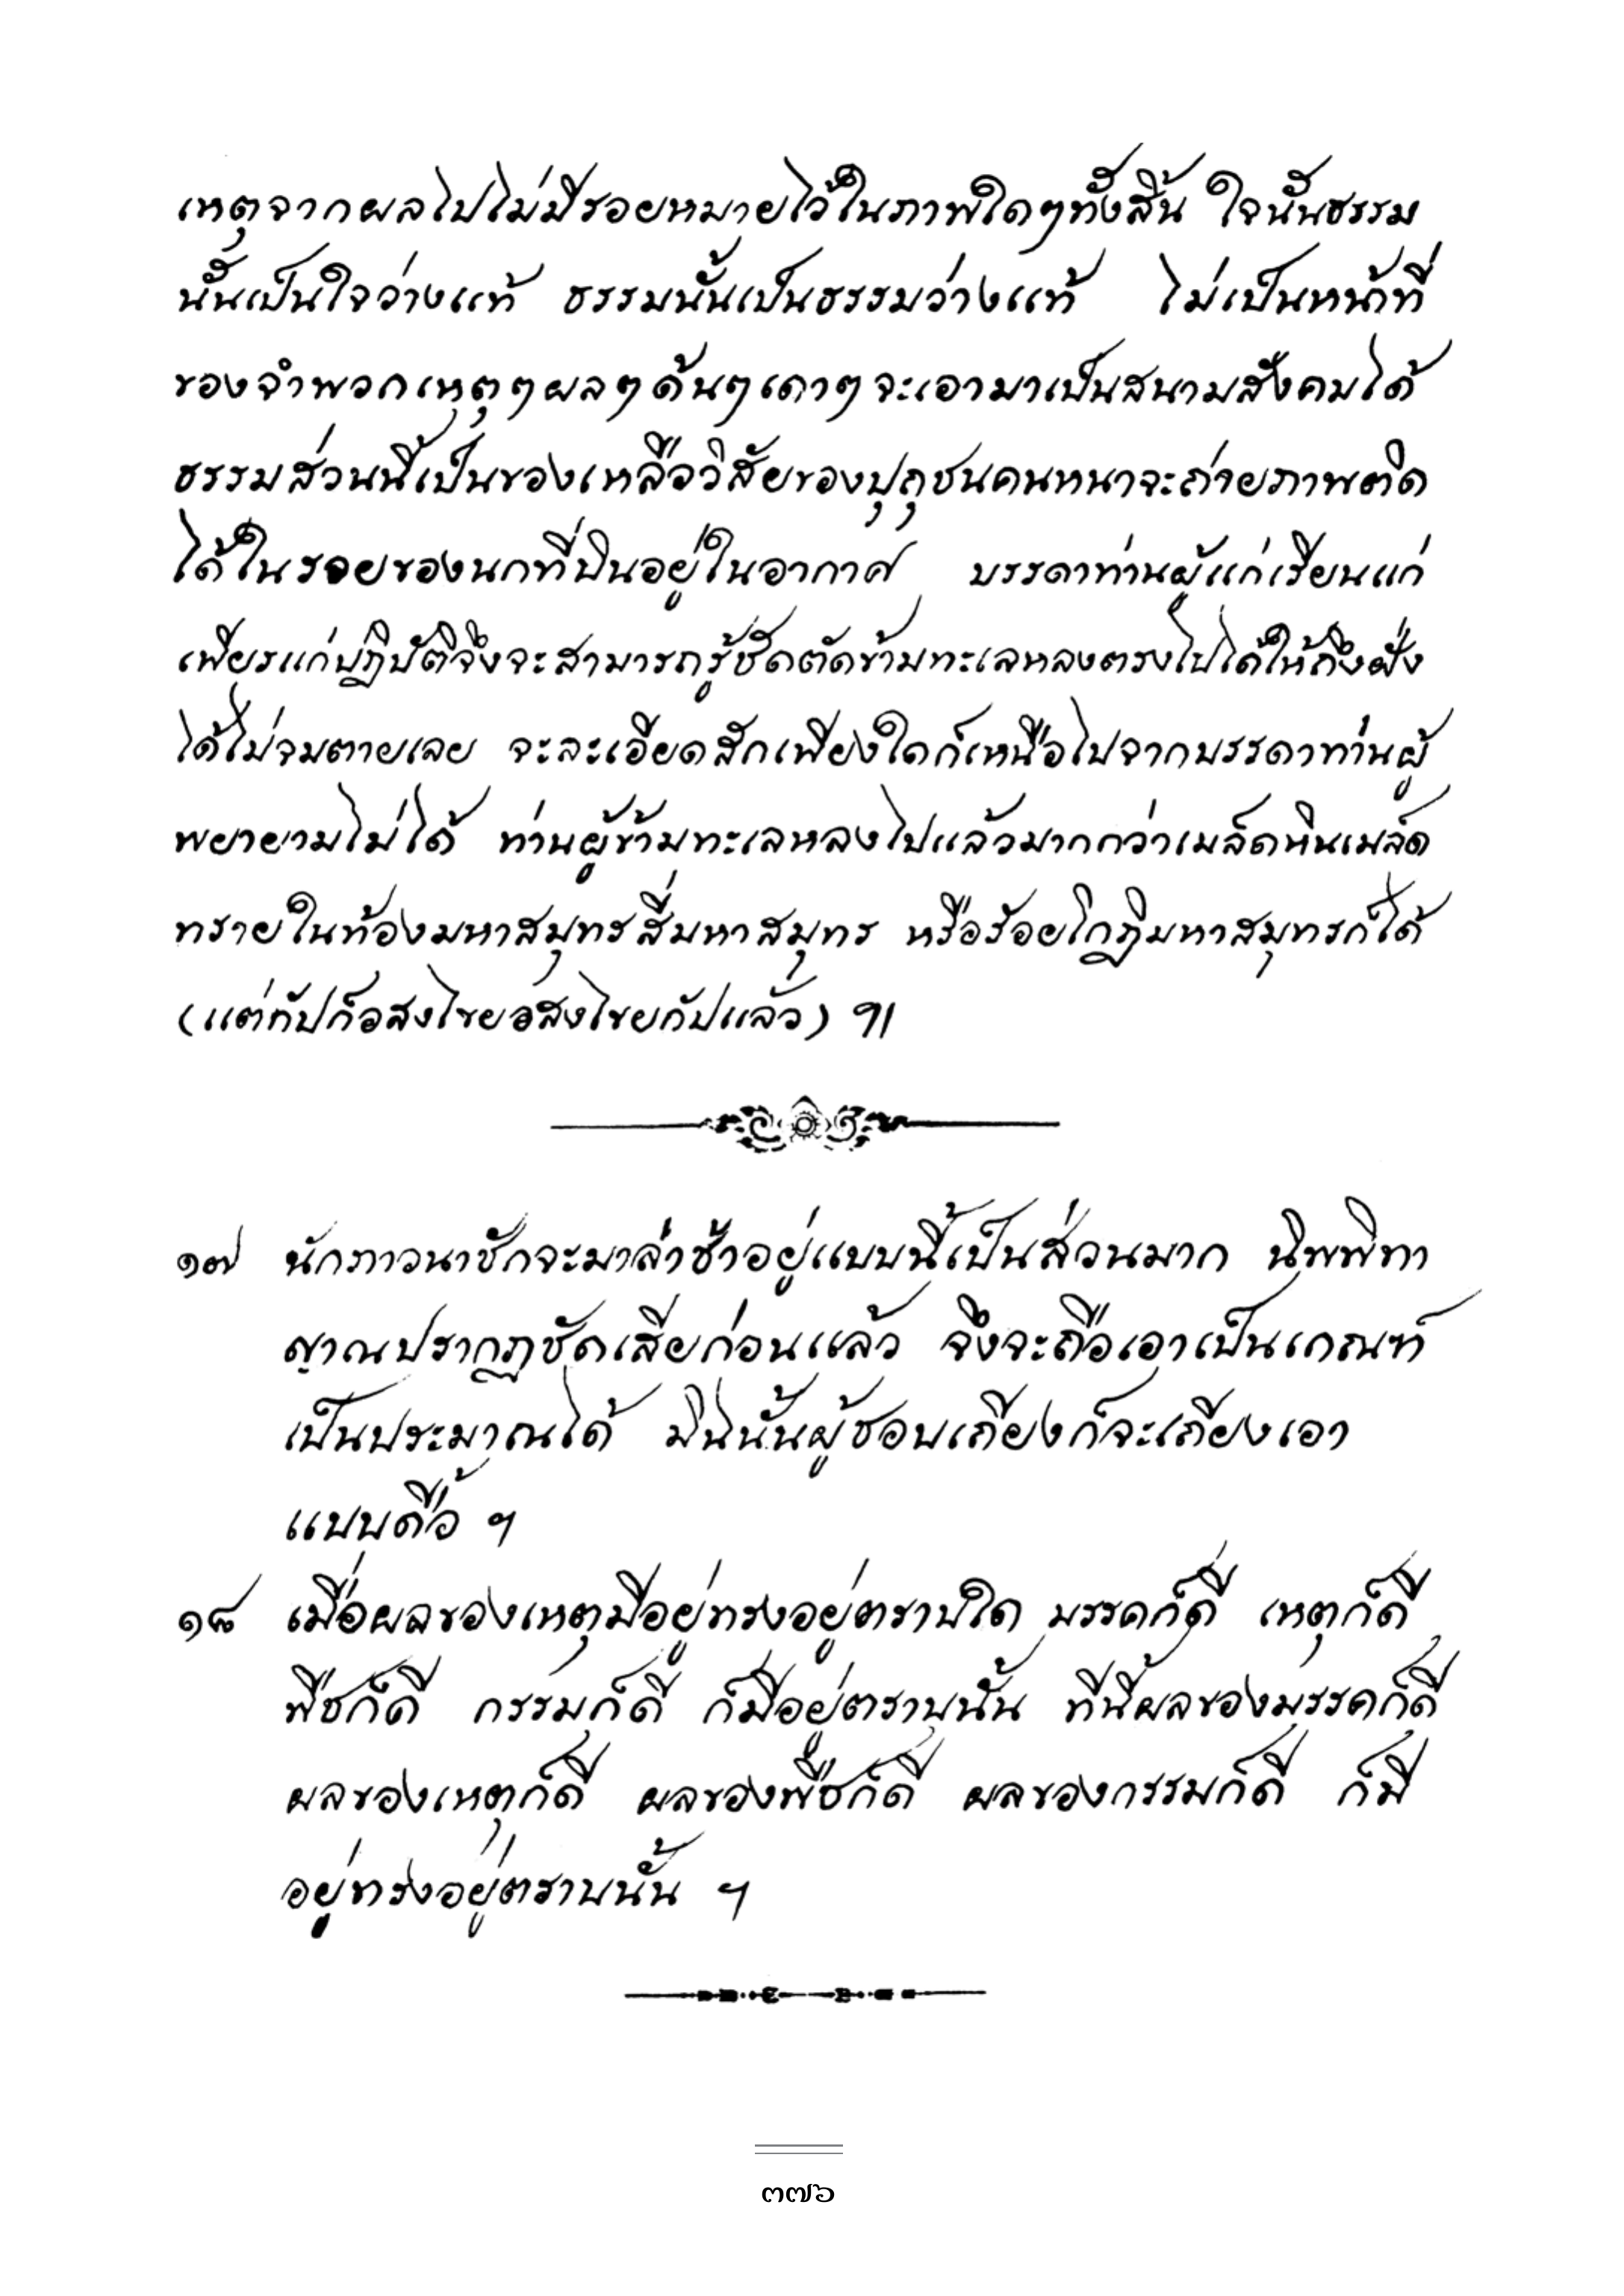 เหตุจากผลไปไม่มีรอยหมายไว้ในภาพใดๆทั้งสิ้น ใจนั้นธรรม
นั้นเป็นใจว่างแท้ ธรรมนั้นเป็นธรรมว่างแท้ ไม่เป็นหน้าที่
ของจำพวกเหตุๆผลๆด้นๆเดาๆจะเอามาเป็นสนามสังคมได้
ธรรมส่วนนี้เป็นของเหลือวิสัยของปุถุชนคนหนาจะถ่ายภาพติด
ได้ในรอยของนกที่บินอยู่ในอากาศ บรรดาท่านผู้แก่เรียนแก่
เพียรแก่ปฏิบัติจึงจะสามารถรู้ชัดตัดข้ามทะเลหลงตรงไปได้ให้ถึงฝั่ง
ได้ไม่จมตายเลย จะละเอียดสักเพียงใดก็เหนือไปจากบรรดาท่านผู้
พยายามไม่ได้ ท่านผู้ข้ามทะเลหลงไปแล้วมากกว่าเมล็ดหินเมล็ด
ทรายในท้องมหาสมุทรสี่มหาสมุทร หรือร้อยโกฏิมหาสมุทรก็ได้
(แต่กัปก็อสงไขยอสงไขยกัปแล้ว) ๆ।
๑๗ นักภาวนาชักจะมาล่าช้าอยู่แบบนี้เป็นส่วนมาก นิพพิทา
ญาณปรากฏชัดเสียก่อนแล้ว จึงจะถือเอาเป็นเกณฑ์
เป็นประมาณได้ มิฉนั้นผู้ชอบเถียงก็จะเถียงเอา
แบบดื้อ ฯ
๑๘ เมื่อผลของเหตุมีอยู่ทรงอยู่ตราบใด มรรคก็ดี เหตุก็ดี
พืชก็ดี กรรมก็ดี ก็มีอยู่ตราบนั้น ทีนี้ผลของมรรคก็ดี
ผลของเหตุก็ดี ผลของพืชก็ดี ผลของกรรมก็ดี ก็มี
อยู่ทรงอยู่ตราบนั้น ฯ
๓๗๖